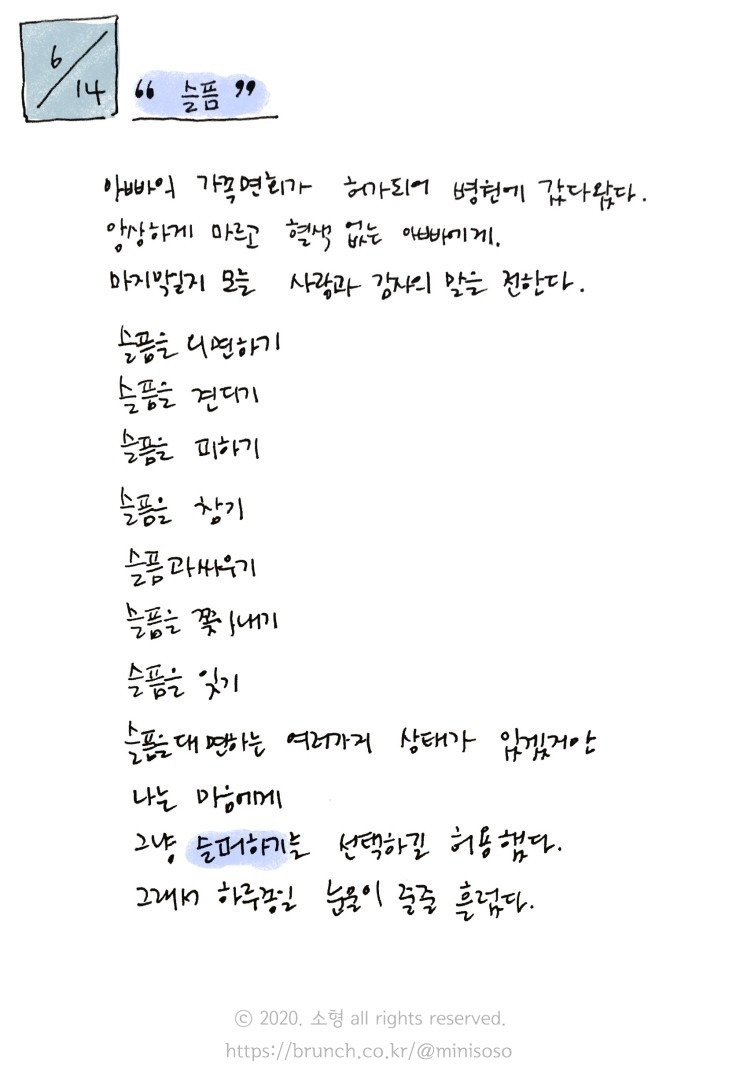 6/14
“ 슬픔 ”
아빠의 가족면회가 허가되어 병원에 갔다왔다.
앙상하게 마르고 혈색 없는 아빠에게.
마지막일지 모를 사랑과 감사의 말을 전한다.
슬픔을 외면하기
슬픔을 견디기
슬픔을 피하기
슬픔을 참기
슬픔과싸우기
슬픔을 쫓아내기
슬픔을 잊기
슬픔을대면하는 여러가지 상태가 있겠지만
나는 마음에게
그냥 슬퍼하기를 선택하길 허용했다.
그래서 하루종일 눈물이 줄줄 흘렀다.
ⓒ 2020. 소형 all rights reserved.
https://brunch.co.kr/@minisoso